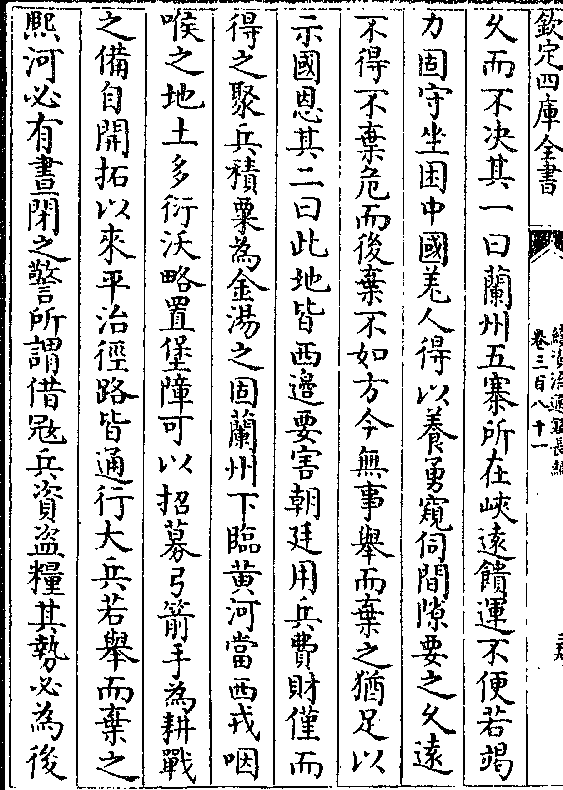 欽定四庫全書
續資治通鑑長編
卷三百八十一
久而不决其一曰蘭州五寨所在峽逺饋運不便若竭
力固守坐困中國羌人得以養勇窺伺間隙要之久逺
不得不棄危而後棄不如方今無事舉而棄之猶足以
示國恩其二曰此地皆西邉要害朝廷用兵費財僅而
得之聚兵積粟為金湯之固蘭州下臨黄河當西戎咽
喉之地土多衍沃略置堡障可以招募弓箭手為耕戰
之備自開拓以來平治徑路皆通行大兵若舉而棄之
熙河必有晝閉之警所謂借冦兵資盗糧其勢必為後